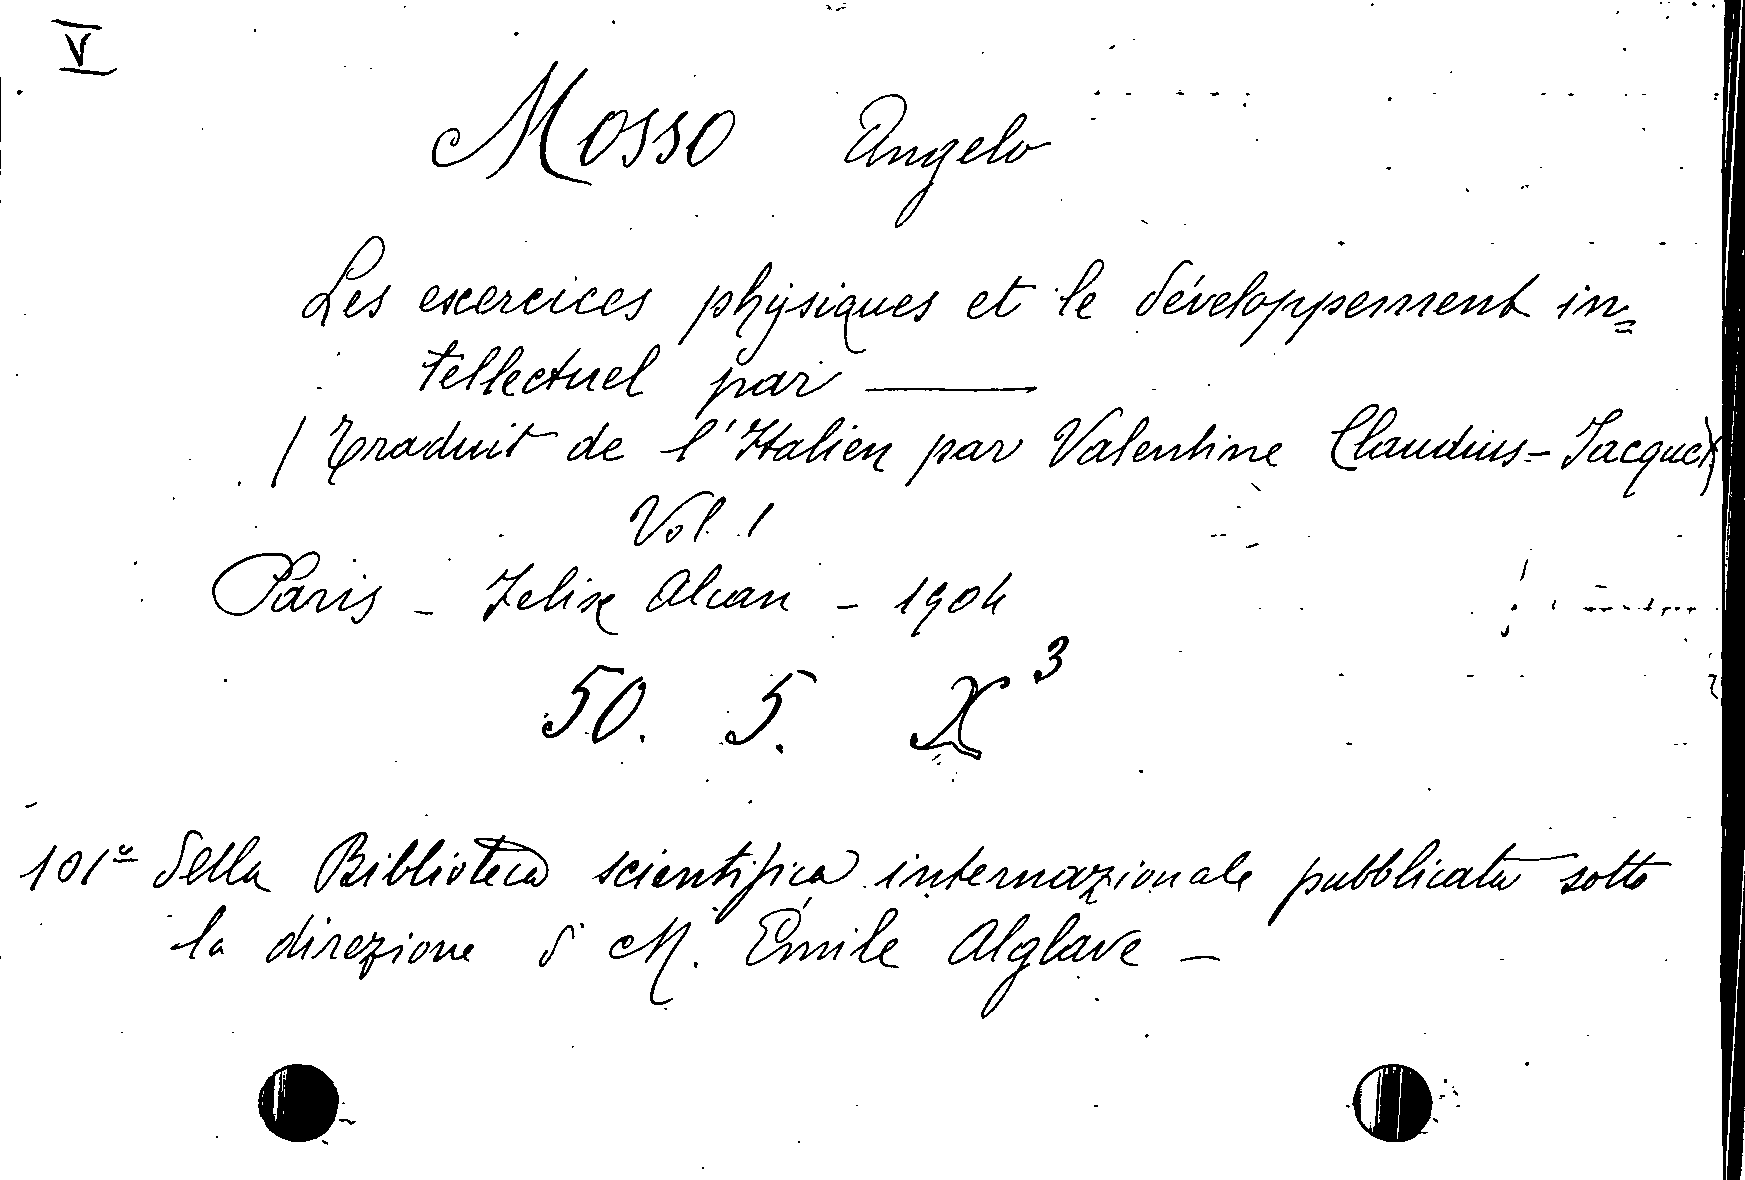 V
Mosso Angelo
Les exercices physiques et le développement in=
tellectuel par ———
(Traduit de l'Italien par Valentine Claudius-Jacquet)
Vol. 1
Paris - Felix Alcan - 1904
50. 5. X³
101º della Biblioteca scientifica internazionale pubblicata sotto
la direzione d M. Émile Alglave -